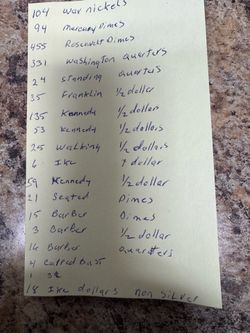 104 war nickels
94 mercury Dimes
455 Roosevelt Dimes
331 washington quarters
24 standing quarters
35 Franklin 1/2 dollar
135 Kennedy 1/2 dollars
53 Kennedy 1/2 dollars
25 walking 1/2 dollars
6 Ike 1 dollar
59 Kennedy 1/2 dollar
21 Seated Dimes
15 Barber Dimes
3 Barber 1/2 dollar
16 Barber quarters
4 capped Bust
1 3¢
18 Ike dollars non silver